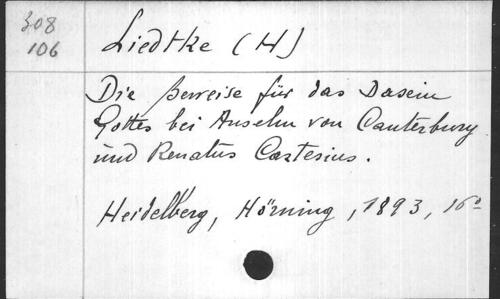 308
106
Liedtke (H)
Die Beweise für das Dasein
Gottes bei Anselm von Canterbury
und Renatus Cartesius.
Heidelberg, Hörning, 1893, 16°